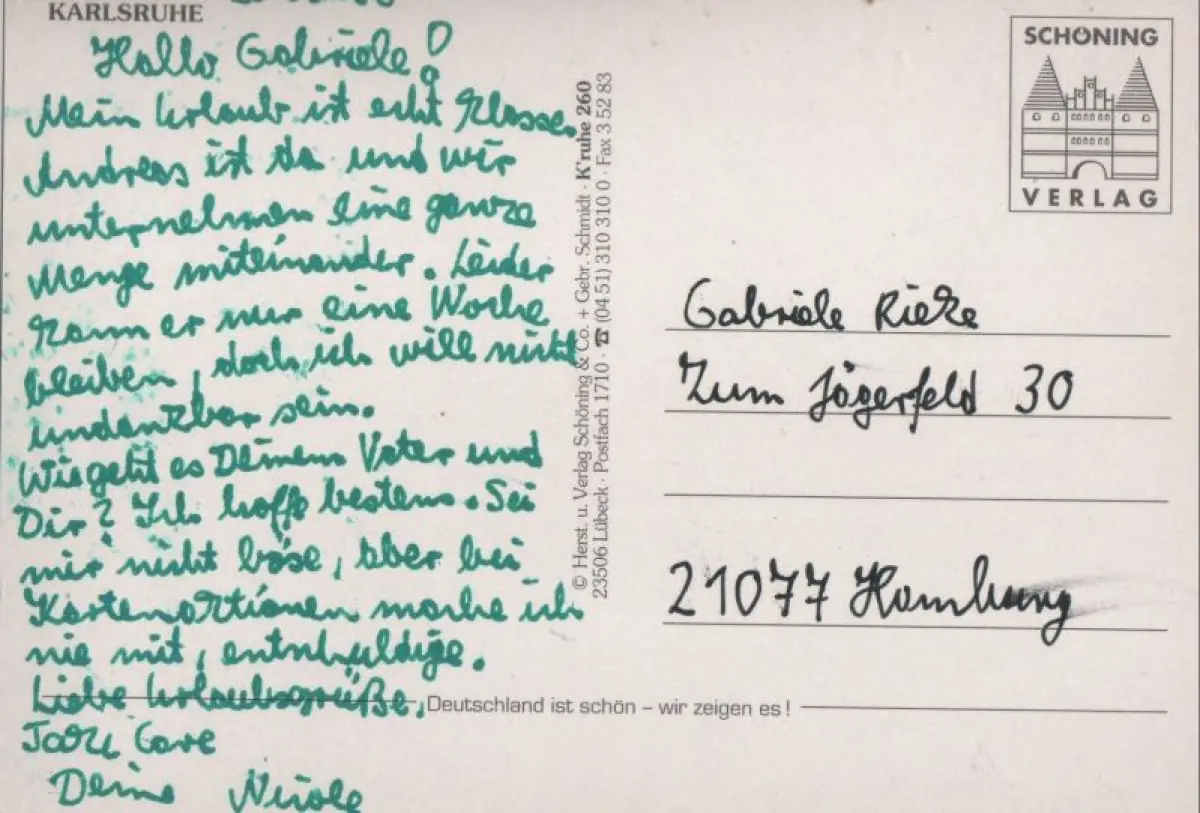 KARLSRUHE
Hallo Gabriele!
Mein Urlaub ist echt Klasse.
Andreas ist da und wir
unternehmen eine ganze
Menge miteinander. Leider
kann er nur eine Woche
bleiben, doch ich will nicht
undankbar sein.
Wie geht es Deinem Vater und
Dir? Ich hoffe bestens. Sei
mir nicht böse, aber bei
Kartenaktionen mache ich
nie mit, entschuldige.
Liebe Urlaubsgrüße,
Take Care
Deine Nicole
© Herst. u. Verlag Schöning & Co. + Gebr. Schmidt · K'ruhe 260
23506 Lübeck · Postfach 1710 · ☎ (04 51) 310 310 0 · Fax 3 52 83
SCHÖNING
VERLAG
Gabriele Rieke
Zum Jägerfeld 30
21077 Hamburg
Deutschland ist schön – wir zeigen es!